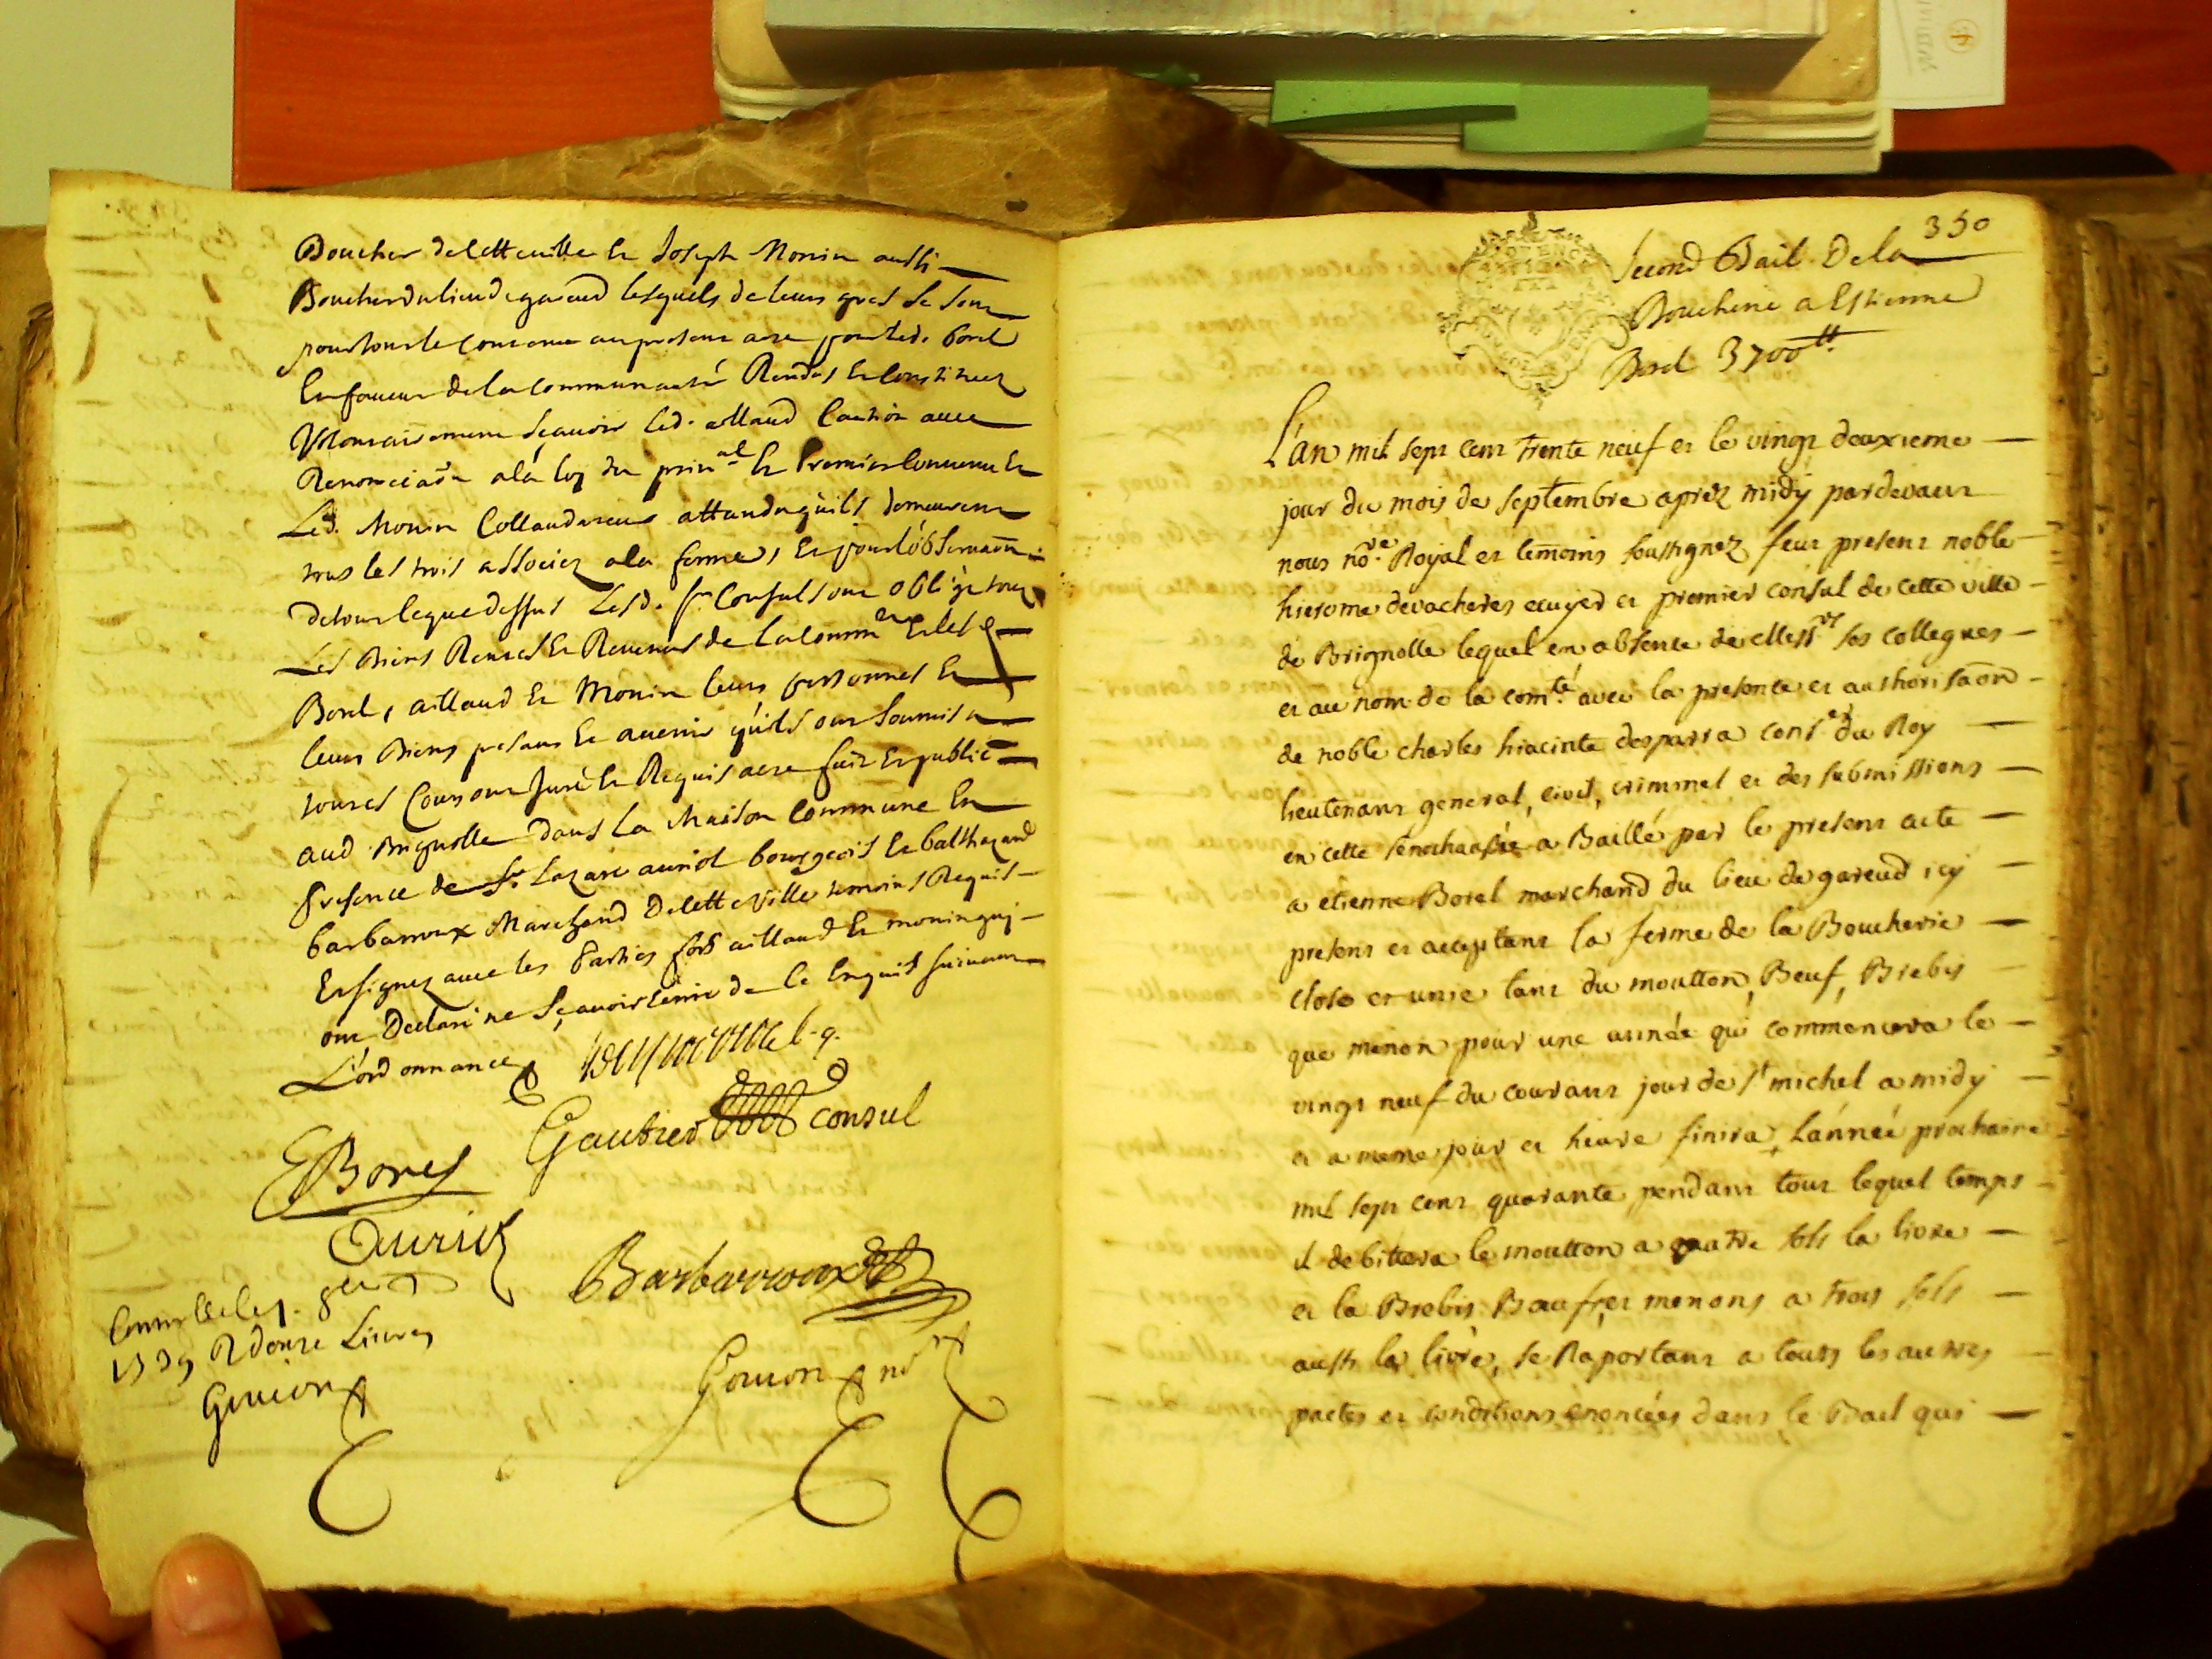 Boucher de cette ville Et Joseph Monin aussi
Boucher du lieu de gareud lesquels de leurs grés se sont
pour tout le contenu au present acte pour led. Borel
En faveur de la communauté Rendus Et Constitués
Volontairement sçavoir led. aillaud Caution avec
Renonciaõn a la loy du prin.al Et Premier Convenu Et
Led. Monin Collaudateur attandu qu'ils demeurent
tous les trois associez a la ferme, Et pour l'observaõn
de tout ce que dessus Lesd. srs Consuls ont obligé tous
Les Biens Rentes Et Revenus de la comm.té Et les
Borel, aillaud Et Monin leurs personnes Et
leurs Biens presans Et avenir qu'ils ont soumis a
toutes Cours ont Juré Et Requis acte fait Et publié
aud Brignolle dans la Maison Commune En
presence de Sr. Lazare auriol bourgeois Et balthazard
barbarroux Marchand de cette ville temoins Requis
Et signez avec les Parties fors aillaud Et monin qui
ont Declaré ne Sçavoir Ecrire de ce Enquis suivant
L'ordonnance
Gautier consul
EBorel
Auriol
Barbarroux
1739 R douze Livres
Gouion
Gouion no.re
350
Second Bail De la
Boucherie a Estienne
Borel 3700tt.
L'an mil sept cent trente neuf et le vingt deuxieme
jour du mois de septembre aprez midy pardevant
nous no.re Royal et temoins soussignez feut present noble
hierome devacheres ecuyer et premier consul de cette ville
de Brignolle lequel en absence de messrs ses collegues
et au nom de la com.té avec la presence et authorisaõn
de noble charles hiacinte desparra cons.er du Roy
lieutenant general, civil, criminel et des submissions
en cette senechaussée a Baillé par le present acte
a etienne Borel marchand du lieu de gareud icy
present et acceptant la ferme de la Boucherie
close et unie tant du moutton, Beuf, Brebis
que menon pour une année qui commencera le
vingt neuf du courant jour de st michel a midy
et a meme jour et heure finira L'année prochaine
mil sept cent quarante pendant tout lequel temps
il debittera le moutton a quatre sols la livre
et la Brebis Bœuf, et menons a trois sols
aussy la livre, se Raportant a touts les autres
pactes et conditions énoncées dans le Bail qui